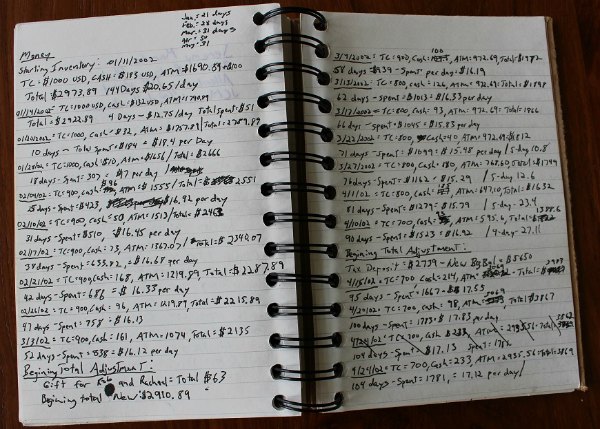 Jan. = 21 days
Feb. = 28 days
Mar. = 31 days
apr = 30
may = 31
Money
Starting Inventory: 01/11/2002
TC = $1000 USD, CASH = $183 USD, ATM = $1690.89 + $100
Total $2973.89 144 Days $20.65/day
01/14/2002 = TC = 1000 USD, Cash = $132 USD, ATM =
Total = $2922.89 4 Days - $12.75/day Total Spent $51
01/20/2002 = TC = 1000, Cash = $32, ATM = $1757.89 / Total = 2789.89
10 days - Total Spent = $184 = $18.4 per Day
01/28/02 = TC = 1000, Cash = $10, ATM = $1656 / Total = $2666
18 days - Spent 307 = $17 per day
02/04/02 = TC = 900, Cash = $96, ATM = $1555 / Total = $2551
25 days = $423, = $16.92 per day
02/10/02 = TC = 900, CASH = 50, ATM = 1513 / Total = $2463
31 days = $510, = $16.45 per day
02/17/02 = TC = 900, Cash = 73, ATM = 1367.07 / Total = $2340.07
38 days - Spent = 633.82, = $16.68 per day
02/21/02 = TC = 900, Cash = 168, ATM = 1219.89, Total = $2287.89
42 days - Spent = 686 = $16.33 per day
02/26/02 = TC = 900, Cash = 96, ATM = 1219.89, Total = $2215.89
47 days - Spent = 758 = $16.13
3/3/02 = TC = 900, Cash = 161, ATM = 1074, Total = $2135
52 days - Spent = 838 = $16.12 per day
Begining Total Adjustment:
Gift for and Rachael = Total $63
Begining total New: $2910.89
100
3/9/2002 = TC = 900, Cash = ATM = 972.69, Total = $1972
58 days $939 - Spent per day = $16.19
3/13/02 = TC = 800, Cash = 126, ATM = 972.69, Total = $1898
62 days - Spent = $1013 = $16.33 per day
3/17/02 = TC = 800, Cash = 93, ATM = 972.69, Total = 1866
66 days - Spent = $1045 = $15.83 per day
3/22/02 = TC = 800, Cash = 40, ATM = 972.69 = $1812
71 days - Spent = $1099 = $15.48 per day / 5-day 10.8
3/27/02 = TC = 800, Cash = 180, ATM = 768.60, Total = $1749
76 days - Spent = $1162 = $15.29 / 5-day 12.6
4/1/02 = TC = 800, Cash = ATM = 647.10, Total = $1632
81 days - Spent = $1279 = $15.79 / 5-day - 23.4
4/10/02 = TC = 700, Cash = ATM = 595.6, Total =
90 days - Spent = $1523 = $16.92 / 4-day = 27.11
Begining Total Adjustment:
Tax Deposit = $2739 - New Beg Bal = $5650
4/15/02 = TC = 700, Cash = 214, ATM = Total =
95 days - Spent = 1667 - $17.55
4/20/02 = TC = 700, Cash = 98, ATM = Total = $3867
100 days - Spent = 1783 = $17.83 per day
4/24/02 = TC = 700, Cash = ATM = Total =
104 days - Spent = $17.13 Spent = 178
4/24/02 = TC = 700, Cash = 233, ATM = 2935.56, Total = 3869
104 days - Spent = 1781, = 17.12 per day